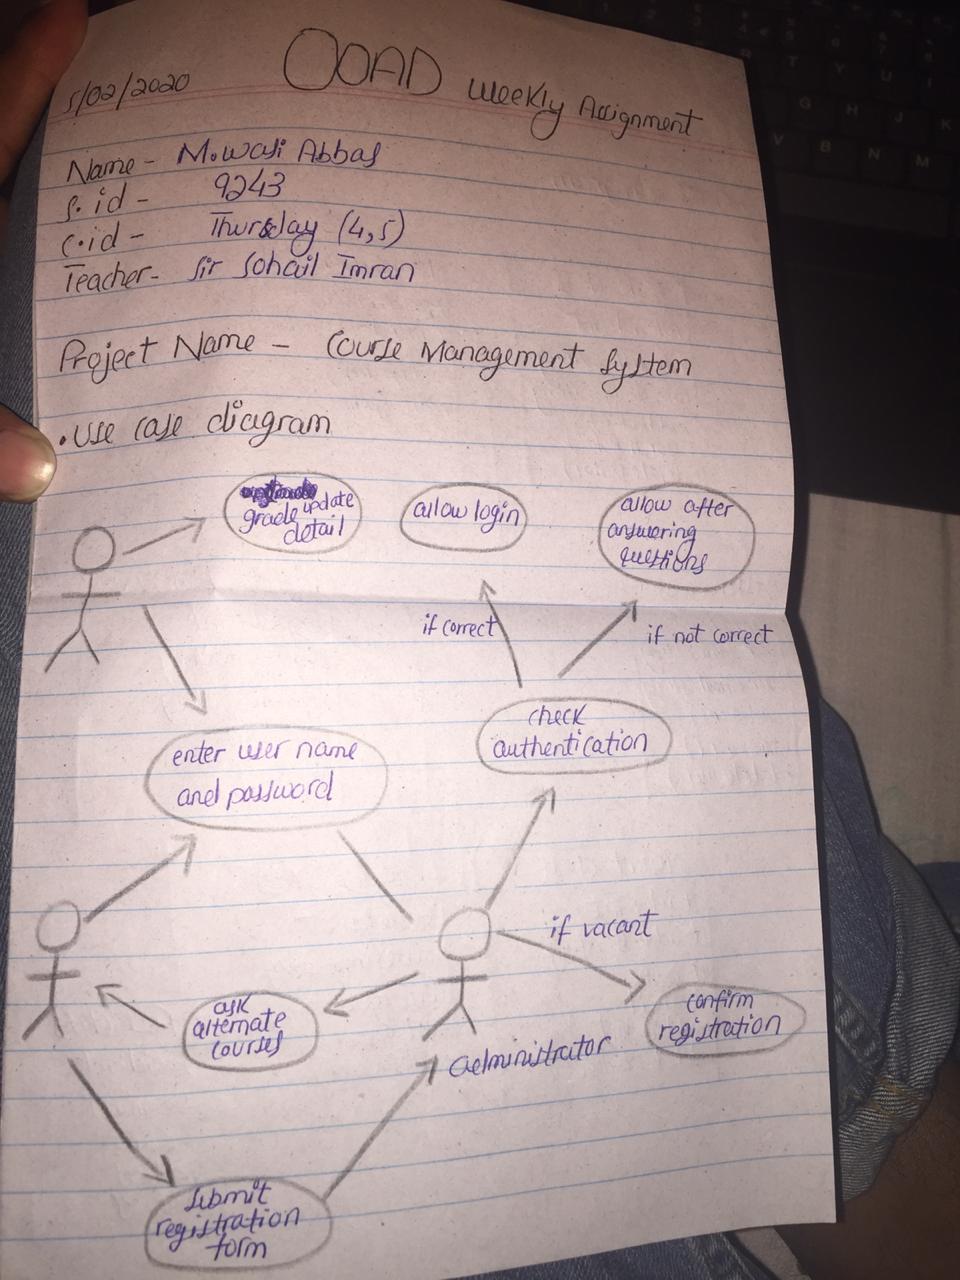 5/02/2020 OOAD Weekly Assignment
Name - M.wasi Abbas
S.id - 9243
C.id - Thursday (4,5)
Teacher- Sir Sohail Imran
Project Name - Course Management System
• Use case diagram
grade update
detail
allow login
allow after
answering
questions
if correct
if not correct
check
authentication
enter user name
and password
if vacant
ask
alternate
courses
confirm
registration
administrator
submit
registration
form